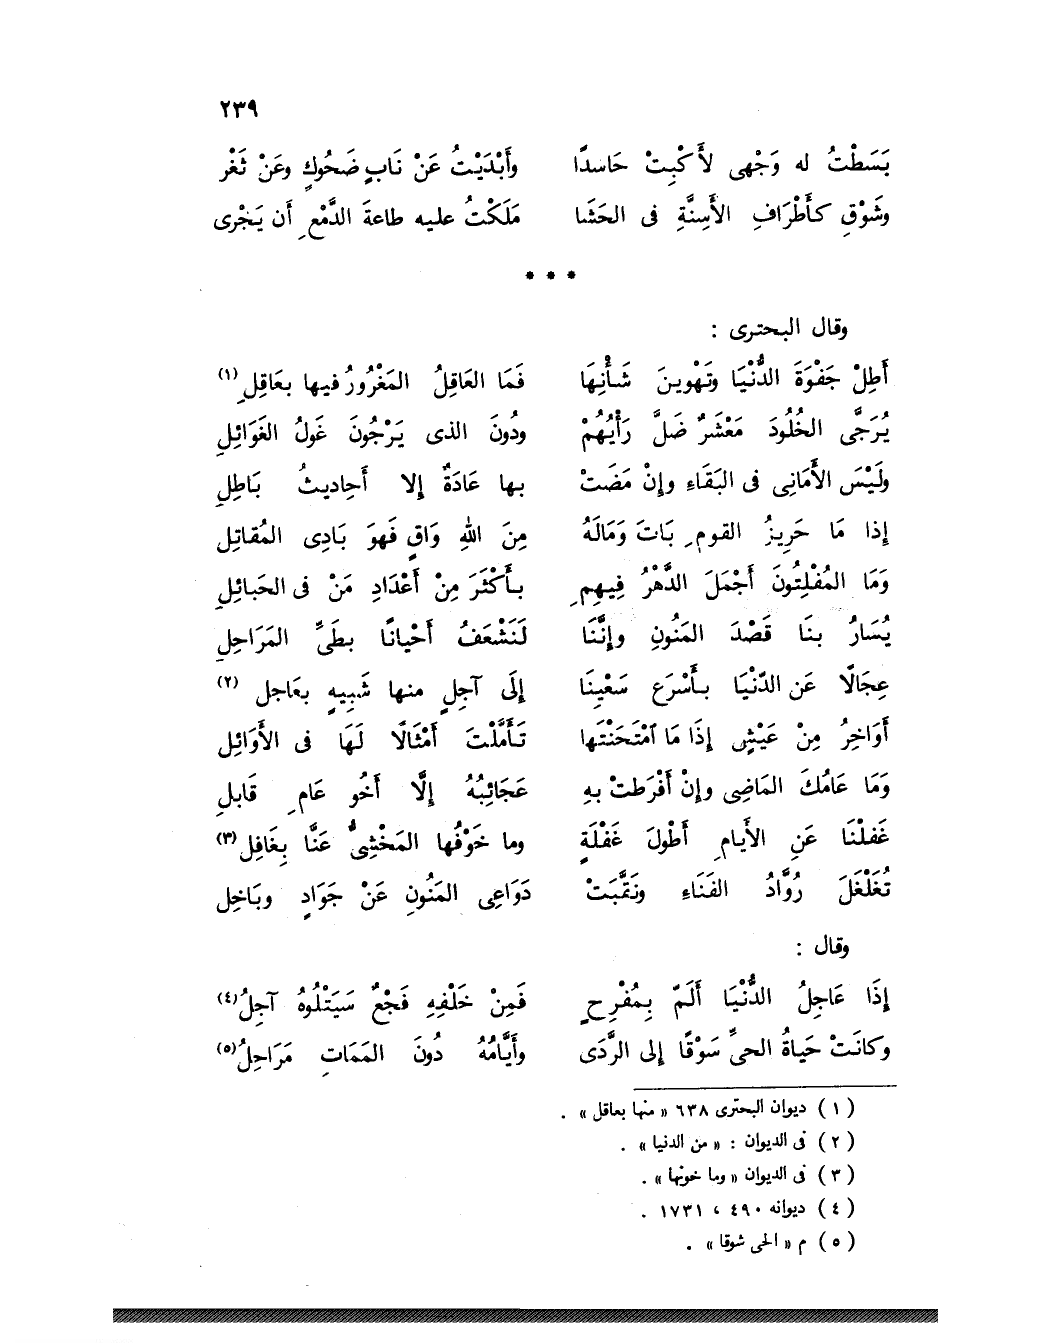 ٢٣٩
بَسَطْتُ له وَجْهى لأَكْبِتْ حَاسدًا وأَبْدَيْتُ عَنْ نَابٍ ضَحُوكٍ وعَنْ ثَغْر
وشَوْقِ كأَطْرَافِ الأَسِنَّةِ فى الحَشَا مَلَكْتُ عليه طاعةَ الدَّمْعِ أن يَجْرى
* * *
وقال البحترى :
أَطِلْ جَفْوَةَ الدُّنْيَا وتَهْوينَ شَأْنِهَا فَمَا العَاقِلُ المَغْرُورُ فيها بعَاقِلِ (١)
يُرَجَّى الخُلُودَ مَعْشَرٌ ضَلَّ رَأْيُهُمْ ودُونَ الذى يَرْجُونَ غَولُ الغَوَائِلِ
ولَيْسَ الأَمَانِى فى البَقَاءِ وإنْ مَضَتْ بها عَادَةٌ إلا أَحِاديثُ بَاطِلِ
إذا مَا حَرِيزُ القومِ بَاتَ وَمَالَهُ مِنَ اللهِ وَاقٍ فَهوَ بَادِى المُقاتِلِ
وَمَا المُفْلِتُونَ أَجْمَلَ الدَّهْرُ فِيهِمِ بأَكْثَرَ مِنْ أَعْدَادِ مَنْ فى الحَبائِلِ
يُسَارُ بنَا قَصْدَ المَنُونِ وإنَّنَا لَنَشْعَفُ أَحْيانًا بطَىِّ المَرَاحِلِ
عِجَالًا عَن الدّنْيَا بأَسْرَع سَعْينَا إلَى آجِلٍ منها شَبِيهٍ بعَاجل (٢)
أَوَاخِرُ مِنْ عَيْشٍ إذَا مَا ٱمْتَحَنْتَها تَأَمَّلْتَ أَمْثَالًا لَهَا فى الأَوَائِلِ
وَمَا عَامُكَ المَاضِى وإنْ أَفْرَطتْ بهِ عَجَائِبُهُ إلَّا أَخُو عَامٍ قَابلِ
غَفلْنَا عَنِ الأَيامِ أَطْولَ غَفْلَةٍ وما خَوْفُها المَخْشِىُّ عَنَّا بِغَافِلِ (٣)
تُغَلْغَلَ رُوَّادُ الفَنَاءِ ونَقَّبَتْ دَوَاعِى المَنُونِ عَنْ جَوَادٍ وبَاخِلِ
وقال :
إذَا عَاجِلُ الدُّنْيَا أَلَمّ بِمُفْرِحٍ فَمِنْ خَلْفِهِ فَجْعٌ سَيَتْلُوهُ آجِلُ (٤)
وكانَتْ حَيَاةُ الحىِّ سَوْقًا إلى الرَّدَى وأَيَّامُهُ دُونَ المَمَاتِ مَرَاحِلُ (٥)
( ١ ) ديوان البحترى ٦٣٨ « منها بعاقل » .
( ٢ ) فى الديوان : « من الدنيا » .
( ٣ ) فى الديوان « وما خونها » .
( ٤ ) ديوانه ٤٩٠ ، ١٧٣١ .
( ٥ ) م « الحى شوقا » .